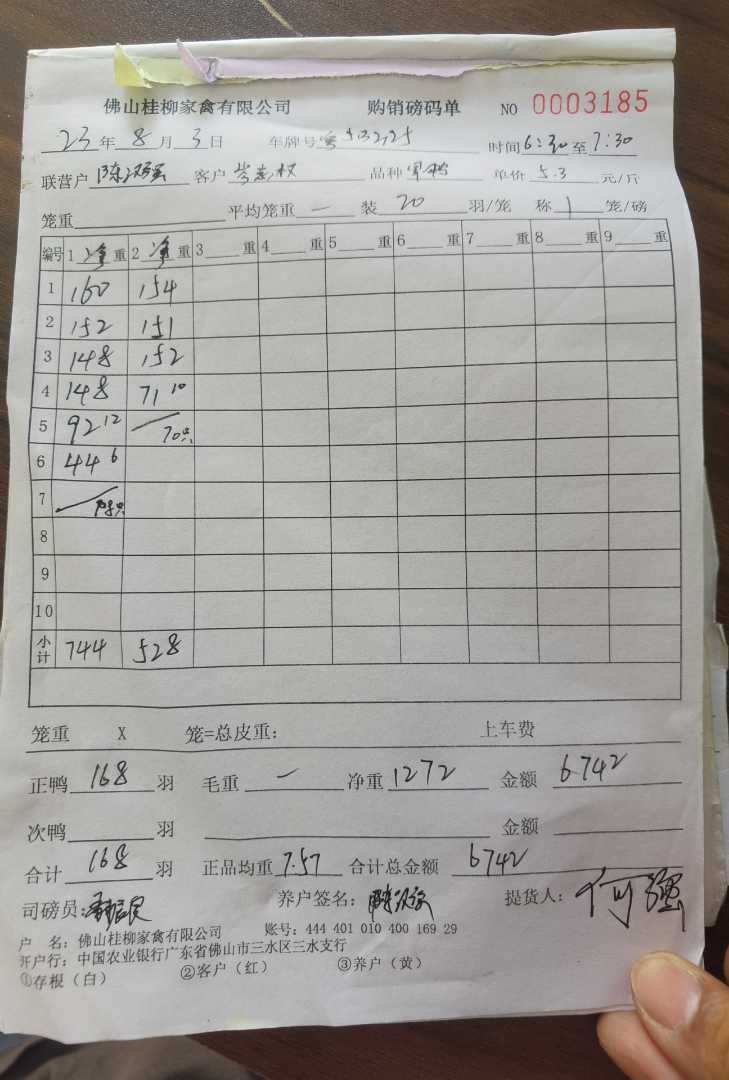 佛山桂柳家禽有限公司 购销磅码单 NO 0003185
23年8月3日 车牌号 时间6:30至7:30
联营户 陈汉强 客户 品种 单价 5.3 元/斤
笼重 平均笼重 一 装 20 羽/笼 称 1 笼/磅
编号 1 净 重 2 净 重 3 重 4 重 5 重 6 重 7 重 8 重 9 重
1 160 154
2 152 151
3 148 152
4 148 71 10
5 92 12 70只
6 44 6
7
8
9
10
小计 744 528
笼重 X 笼=总皮重: 上车费
正鸭 168 羽 毛重 一 净重 1272 金额 6742
次鸭 羽 金额
合计 168 羽 正品均重 7.57 合计总金额 6742
司磅员: 养户签名: 提货人: 何强
户 名: 佛山桂柳家禽有限公司 账号: 444 401 010 400 169 29
开户行: 中国农业银行广东省佛山市三水区三水支行
①存根(白) ②客户(红) ③养户(黄)